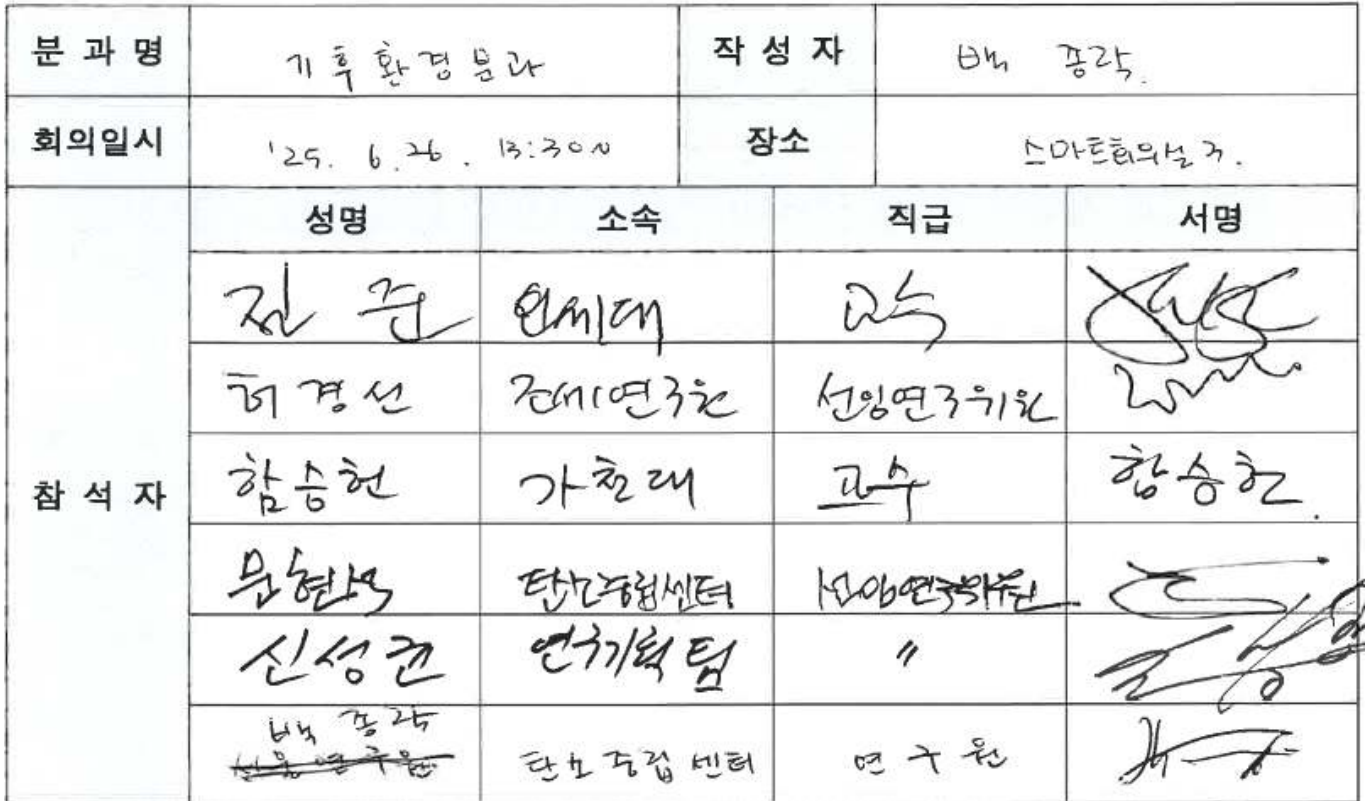 분 과 명 기후환경분과 작 성 자 백 종락.
회의일시 '25. 6. 26. 13:30~ 장소 스마트회의실 3.
성명 소속 직급 서명
참 석 자
김 준 연세대 교수
허경선 조세연구원 선임연구위원
함승헌 가천대 교수 함승헌.
탄소중립센터 선임연구위원
신성균 연구기획팀 "
백 종락
탄소중립센터 연구원